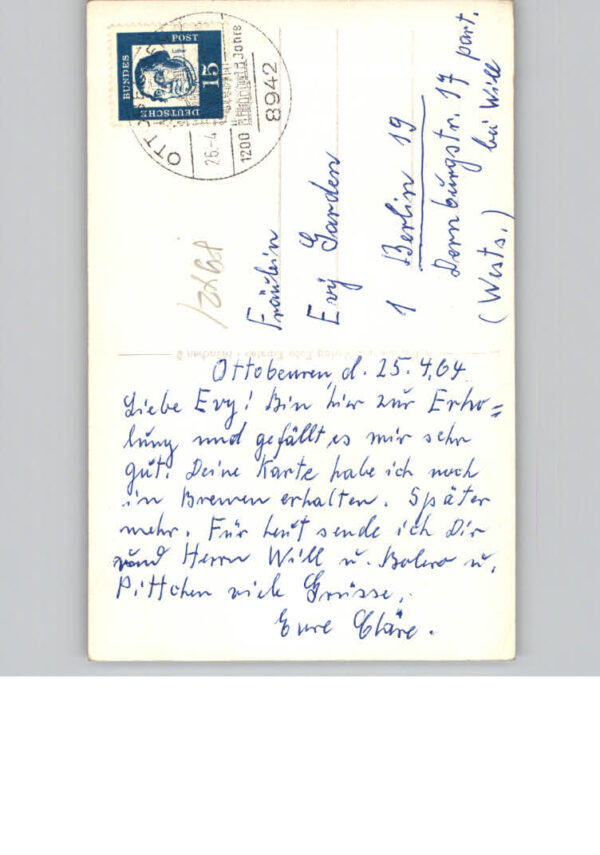 DEUTSCHE
BUNDES
POST
15
OTTOBE
26.-4.
1200
Jahre
8942
Fräulein
Evy Garden
1 Berlin 19
Dernburgstr. 17 part.
bei Will
(Wests.)
Ottobeuren, d. 25.4.64
Liebe Evy! Bin hier zur Erho=
lung und gefällt es mir sehr
gut. Deine Karte habe ich noch
in Bremen erhalten. Später
mehr. Für heut sende ich Dir
und Herrn Will u. Bolero u.
Pittchen viele Grüsse,
Eure Cläre.